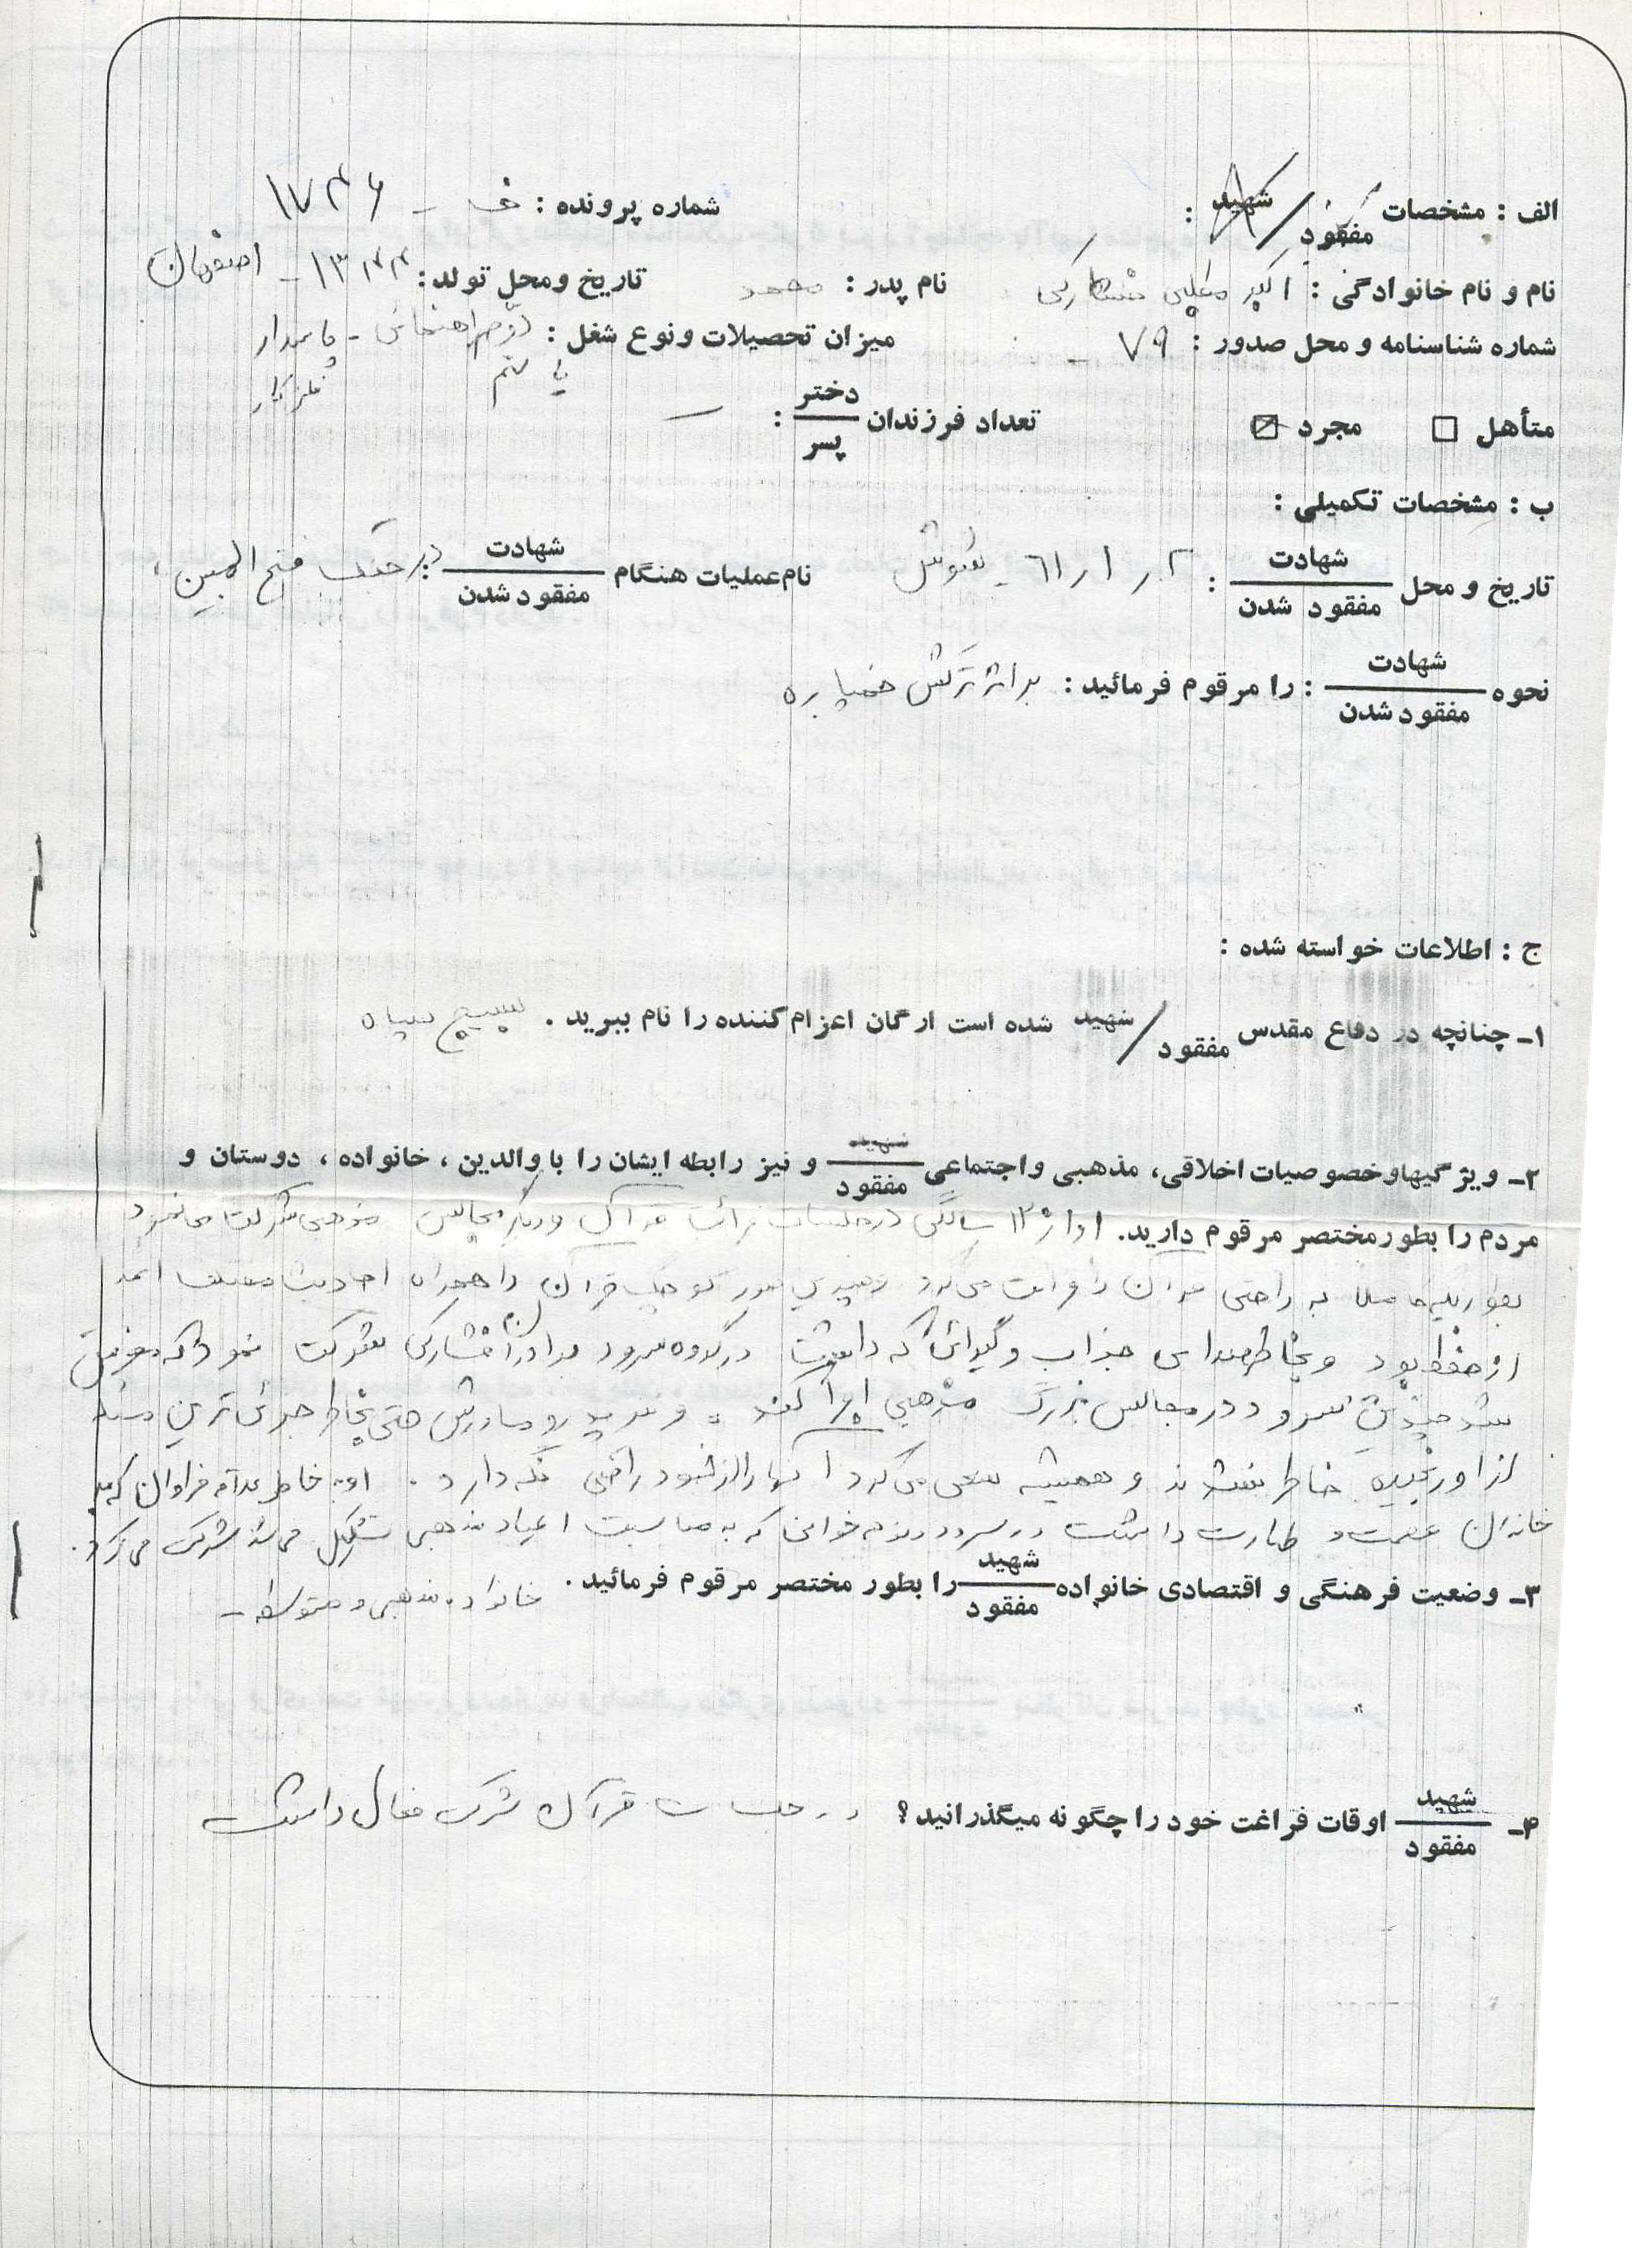 الف : مشخصات شهید / مفقود : شماره پرونده : ف - ۱۷۴۶
نام و نام خانوادگی : اکبر نام پدر : محمد تاریخ ومحل تولد : ۱۳۴۴ - اصفهان
شماره شناسنامه و محل صدور : ۷۹ - میزان تحصیلات ونوع شغل : دوم راهنمائی - پاسدار
متأهل □ مجرد ☑ تعداد فرزندان دختر / پسر : —
ب : مشخصات تکمیلی :
تاریخ و محل شهادت / مفقود شدن : ۲ ر ۱ ر ۶۱ - شوش نام عملیات هنگام شهادت / مفقود شدن : در جنگ فتح المبین
نحوه شهادت / مفقود شدن : را مرقوم فرمائید : بر اثر ترکش خمپاره
ج : اطلاعات خواسته شده :
۱- چنانچه در دفاع مقدس شهید / مفقود شده است ارگان اعزام کننده را نام ببرید . بسیج سپاه
۲- ویژگیهاوخصوصیات اخلاقی، مذهبی واجتماعی شهید / مفقود و نیز رابطه ایشان را با والدین ، خانواده ، دوستان و
مردم را بطورمختصر مرقوم دارید. او از ۱۲ سالگی در جلسات قرائت قرآن و دیگر مجالس مذهبی شرکت می نمود
بطوریکه کاملا به راحتی قرآن را قرائت می کرد و چندین سوره کوچک قرآن را همراه احادیث مختلف ائمه
از حفظ بود و بخاطر صدای جذاب و گیرائی که داشت در گروه سرود برادران افشارکی شرکت نمود که موفق
شد چندین سرود در مجالس بزرگ مذهبی اجرا کند . و پدر و مادرش حتی بخاطر جزئی ترین مسئله
از او رنجیده خاطر نشدند و همیشه سعی می کرد آنها را از خود راضی نگه دارد . او به خاطر علاقه فراوان که به
خاندان عصمت و طهارت داشت در سرود و نوحه خوانی که به مناسبت اعیاد مذهبی تشکیل می شد شرکت می کرد.
۳- وضعیت فرهنگی و اقتصادی خانواده شهید / مفقود را بطور مختصر مرقوم فرمائید . خانواده مذهبی و متوسط -
۴- شهید / مفقود اوقات فراغت خود را چگونه میگذرانید ؟ در جلسات قرآن شرکت فعال داشت